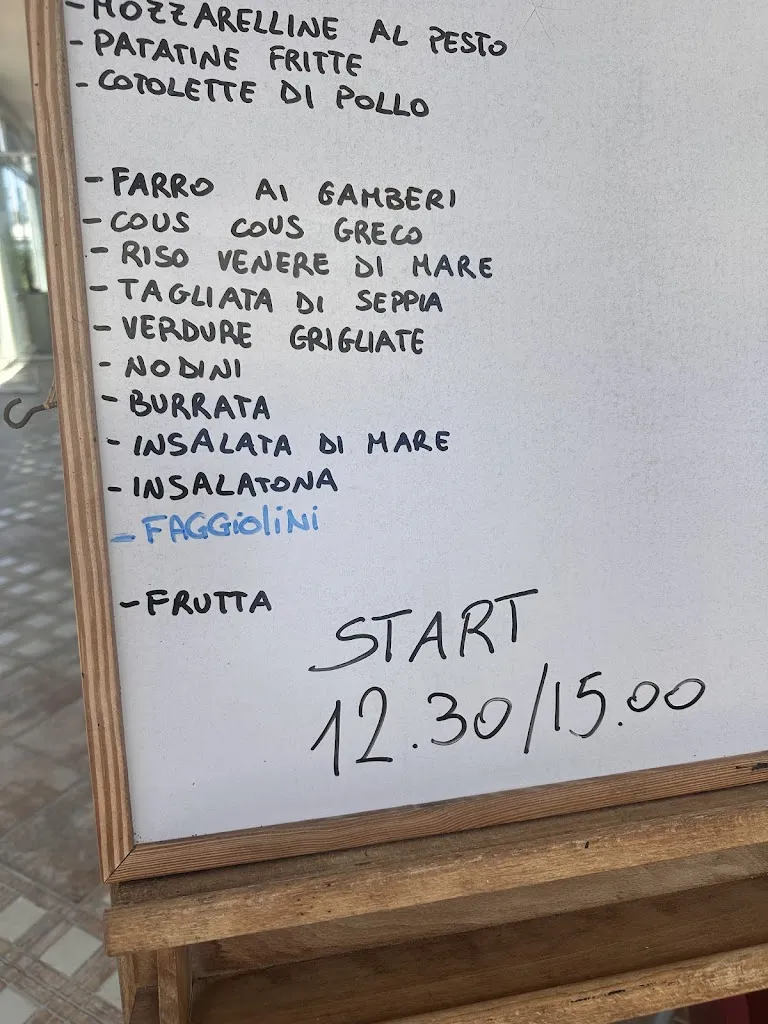 - MOZZARELLINE AL PESTO
- PATATINE FRITTE
- COTOLETTE DI POLLO
- FARRO AI GAMBERI
- COUS COUS GRECO
- RISO VENERE DI MARE
- TAGLIATA DI SEPPIA
- VERDURE GRIGLIATE
- NODINI
- BURRATA
- INSALATA DI MARE
- INSALATONA
- FAGGIOLINI
- FRUTTA
START
12.30/15.00